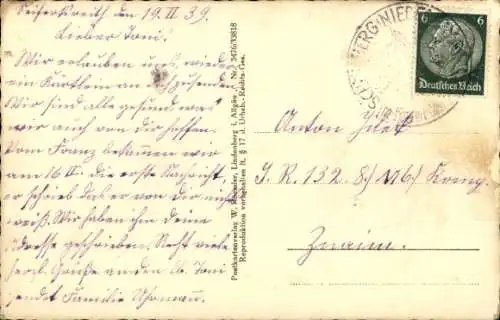 Seifersreith den 19. II. 39.
Lieber Toni!
Wir erlauben uns, wieder
ein Kärtlein an dich zusenden
Wir sind alle gesund was
wir auch von dir hoffen.
Vom Franz bekamen wir
am 16 II. die erste Nachricht
er schrieb das er von dir nicht
weiß. Wir haben ihm deine
Adresse geschrieben. Recht viele
herzl. Grüße an den lb. Toni
sendet Familie
Postkartenverlag W. Lindenberg i. Allgäu Nr. 3476/33818
Reproduktion vorbehalten lt. § 17 d. Urheb.-Rechts-Ges.
6 6
Deutsches Reich
Anton
I. R. 132. 8./ Komp.
Znaim.